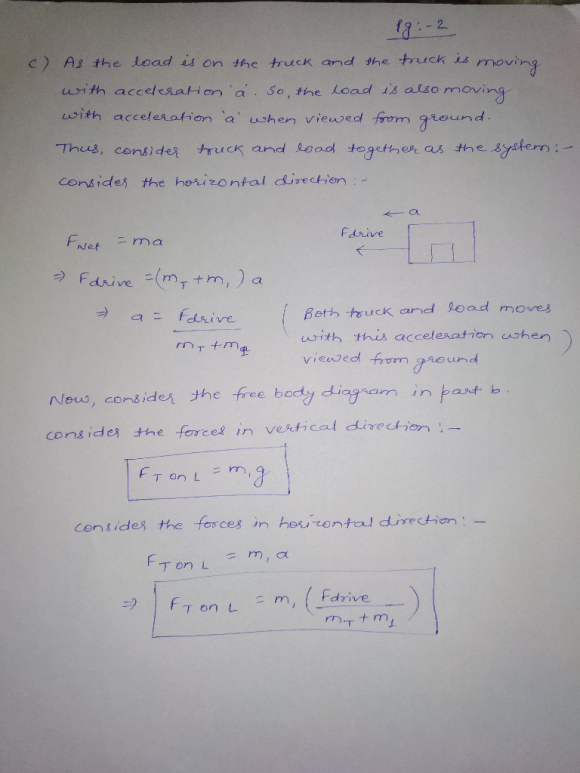 Pg:-2
c) As the load is on the truck and the truck is moving
with acceleration 'a'. So, the load is also moving
with acceleration 'a' when viewed from ground.
Thus, consider truck and load together as the system:-
consider the horizontal direction:-
← a
F_Net = ma
Fdrive
⇒ Fdrive = (m_T + m_1) a
⇒ a = Fdrive / (m_T + m_1)
( Both truck and load moves
with this acceleration when )
viewed from ground
Now, consider the free body diagram in part b.
consider the forces in vertical direction:-
F_T on L = m_1 g
consider the forces in horizontal direction:-
F_T on L = m_1 a
⇒ F_T on L = m_1 ( Fdrive / (m_T + m_1) )